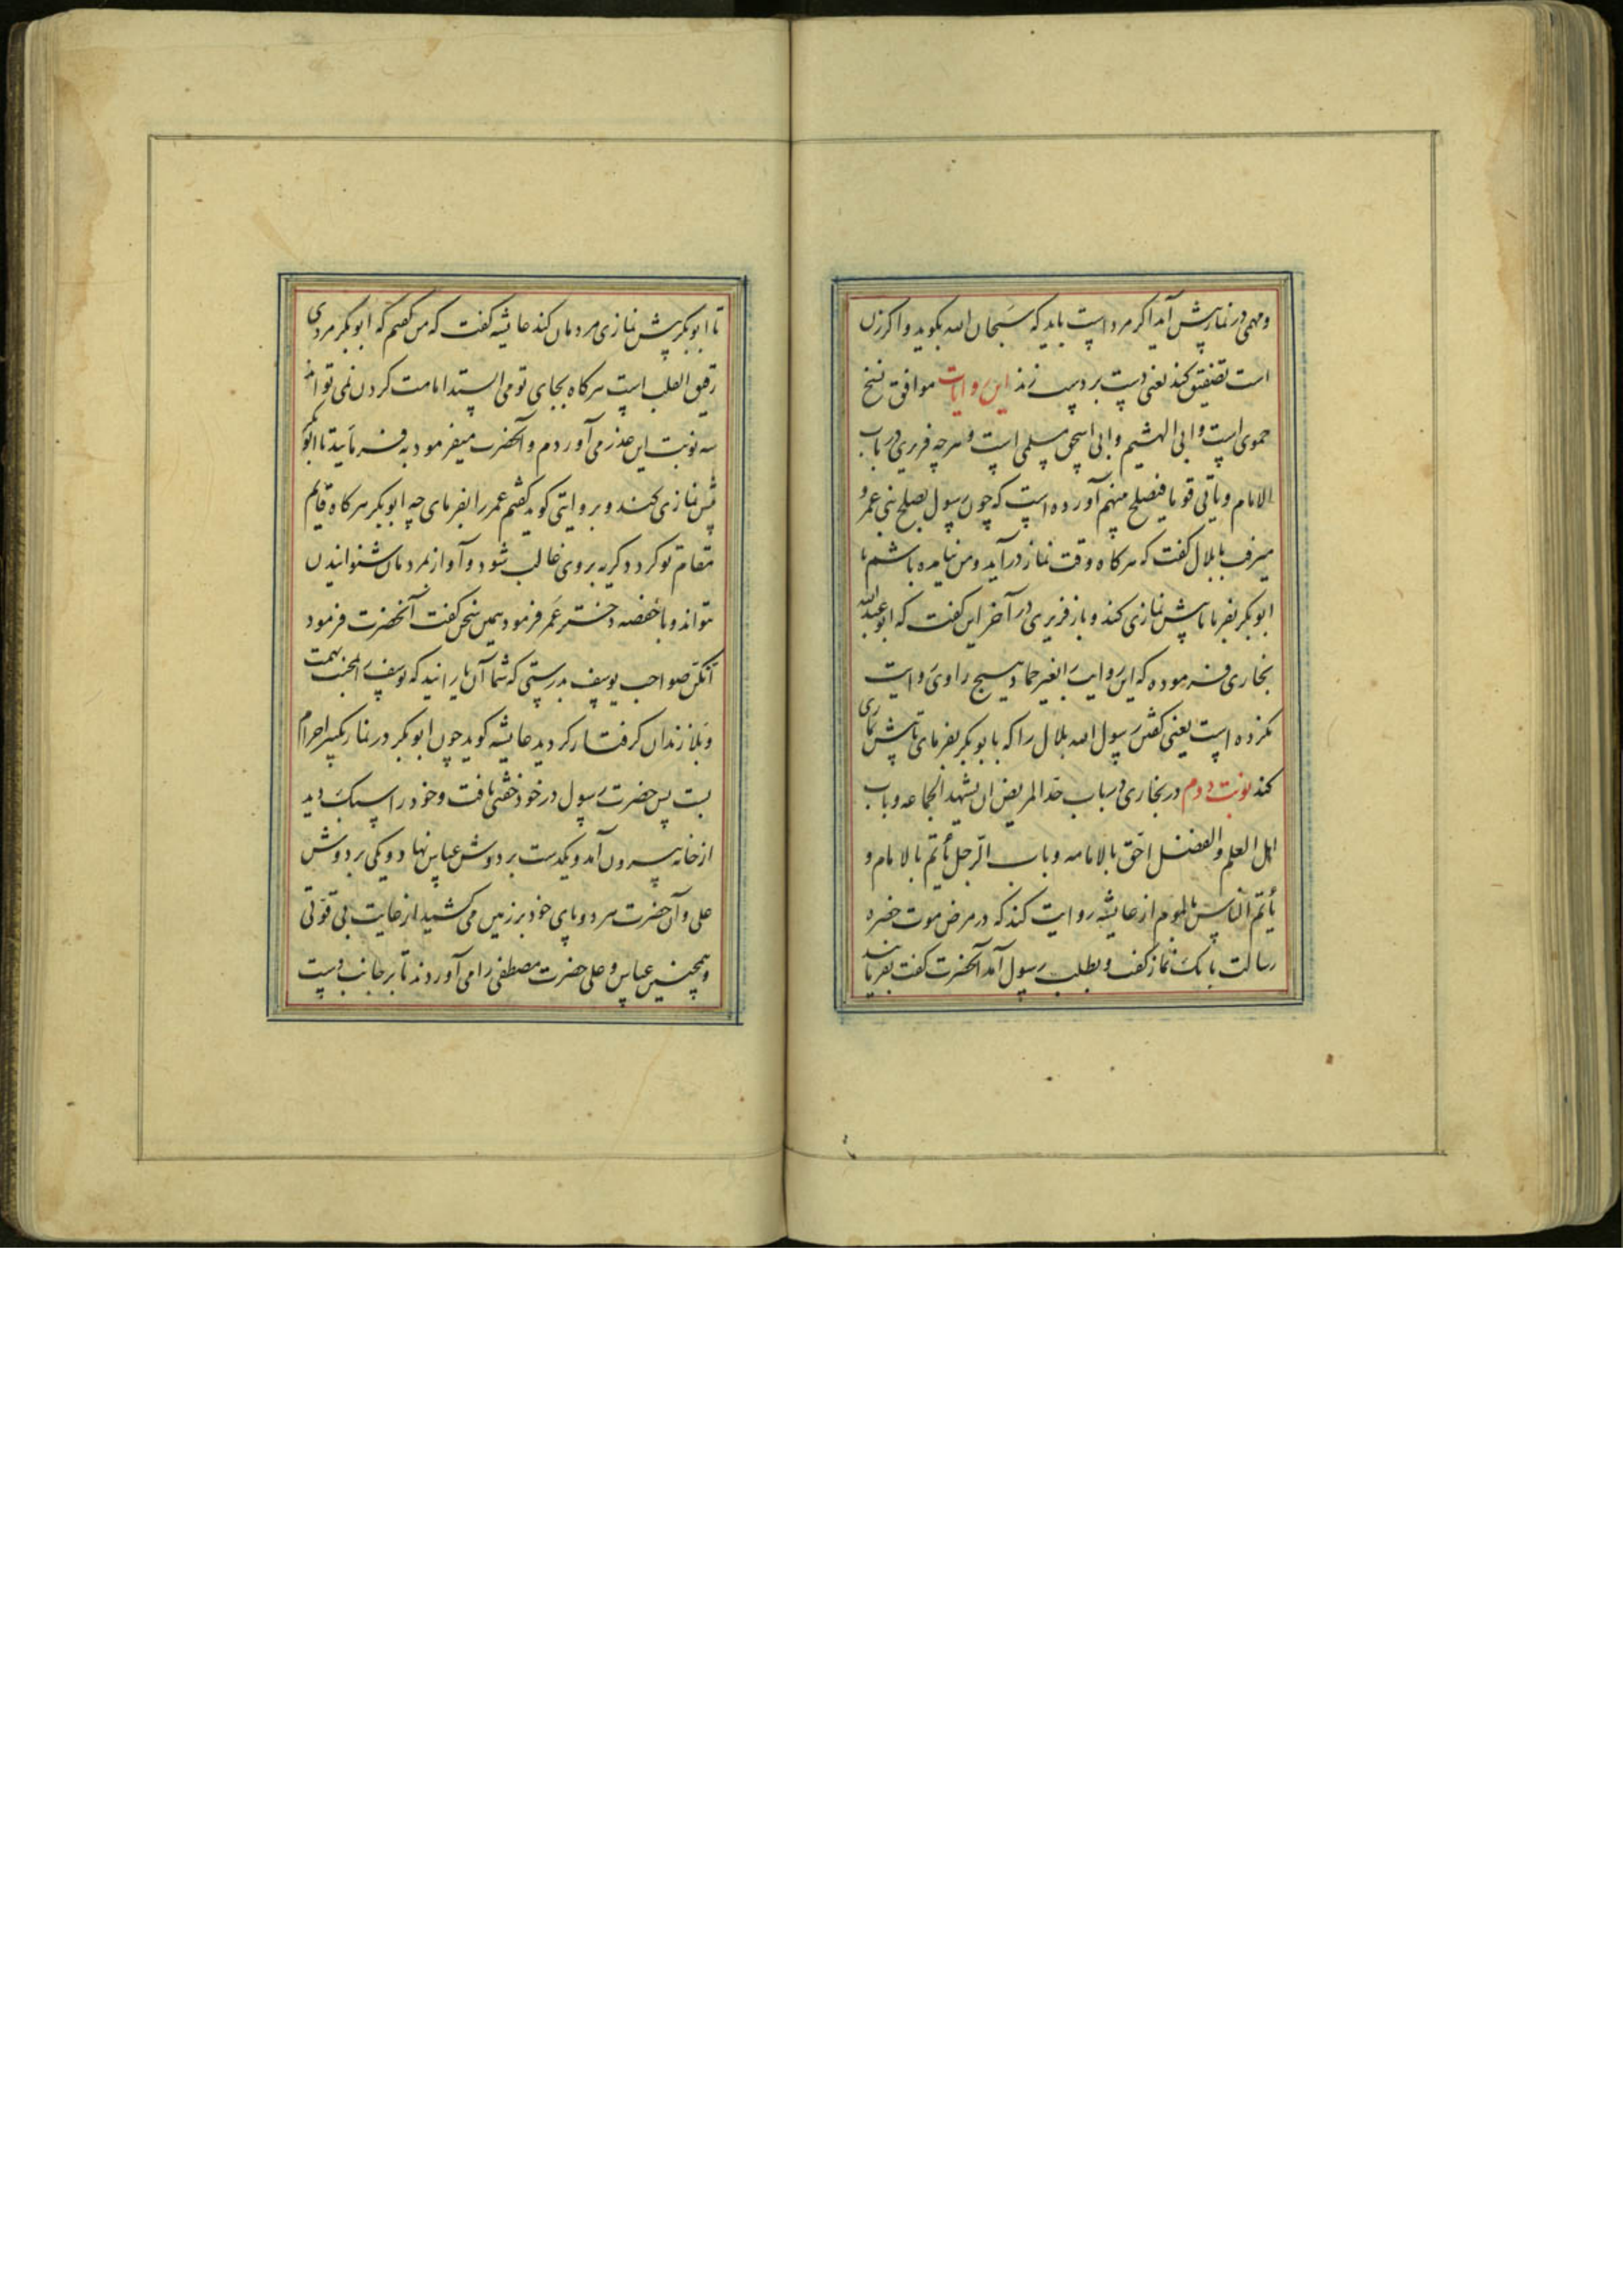 ومهمی در نماز پیش آید اگر مرد است باید که سبحان الله بگوید و اگر زن
است تصفیق کند یعنی دست بر دست زند این روایات موافق نسخ
حموی است و ابی الهشیم و ابی اسحق مسلمی است و هر چه فربری در باب
الامام ویأتی قوما فیصلح بینهم آورده است که چون رسول بصلح بنی عمرو
میرفت با بلال گفت که هر کاه وقت نماز درآید و من نیامده باشم با
ابوبکر بفرما تا پیش نمازی کند و باز فربری در آخر این گفت که ابو عبدالله
بخاری فرموده که این روایت را بغیر حماد هیچ راوی روایت
نکرده است یعنی گفتن رسول الله بلال را که با بوبکر بفرمای تا پیش نمازی
کند نوبت دوم در بخاری در باب حد المریض ان یشهد الجماعه و باب
اهل العلم والفضل احق بالامامه و باب الرجل یأتم بالامام و
یأتم الناس بالمأموم از عایشه روایت کند که در مرض موت حضره
رسالت بانک نماز گفت و بطلب رسول آمد آنحضرت گفت بفرمائید
تا ابوبکر پیش نمازی مردمان کند عایشه گفت که من گفتم که ابوبکر مردی
رقیق القلب است هر کاه بجای تو می ایستد امامت کردن نمی تواند
سه نوبت این عذر می آوردم و آنحضرت میفرمود به فرمایید تا ابوبکر
پیش نمازی کند و بروایتی گوید گفتم عمر را بفرمای چه ابوبکر هر کاه قایم
مقام تو کردد گریه بر وی غالب شود و آواز بمردمان شنوانیدن
نتواند و با حفصه دختر عمر فرمود همین سخن گفت آنحضرت فرمود
انکن صواحب یوسف بدرستی که شما آن یارانید که یوسف را بمحنت
و بلا زندان گرفتار کردید عایشه گوید چون ابوبکر در نماز تکبیر احرام
بست پس حضرت رسول در خود خفتی یافت و خود را سبک دید
از خانه بیرون آمد و یکدست بر دوش عباس نهاد و یکی بر دوش
علی و آن حضرت هر دو پای خود بر زمین می کشید از غایت بی قوتی
و همچنین عباس و علی حضرت مصطفی را می آوردند تا بر جانب دست